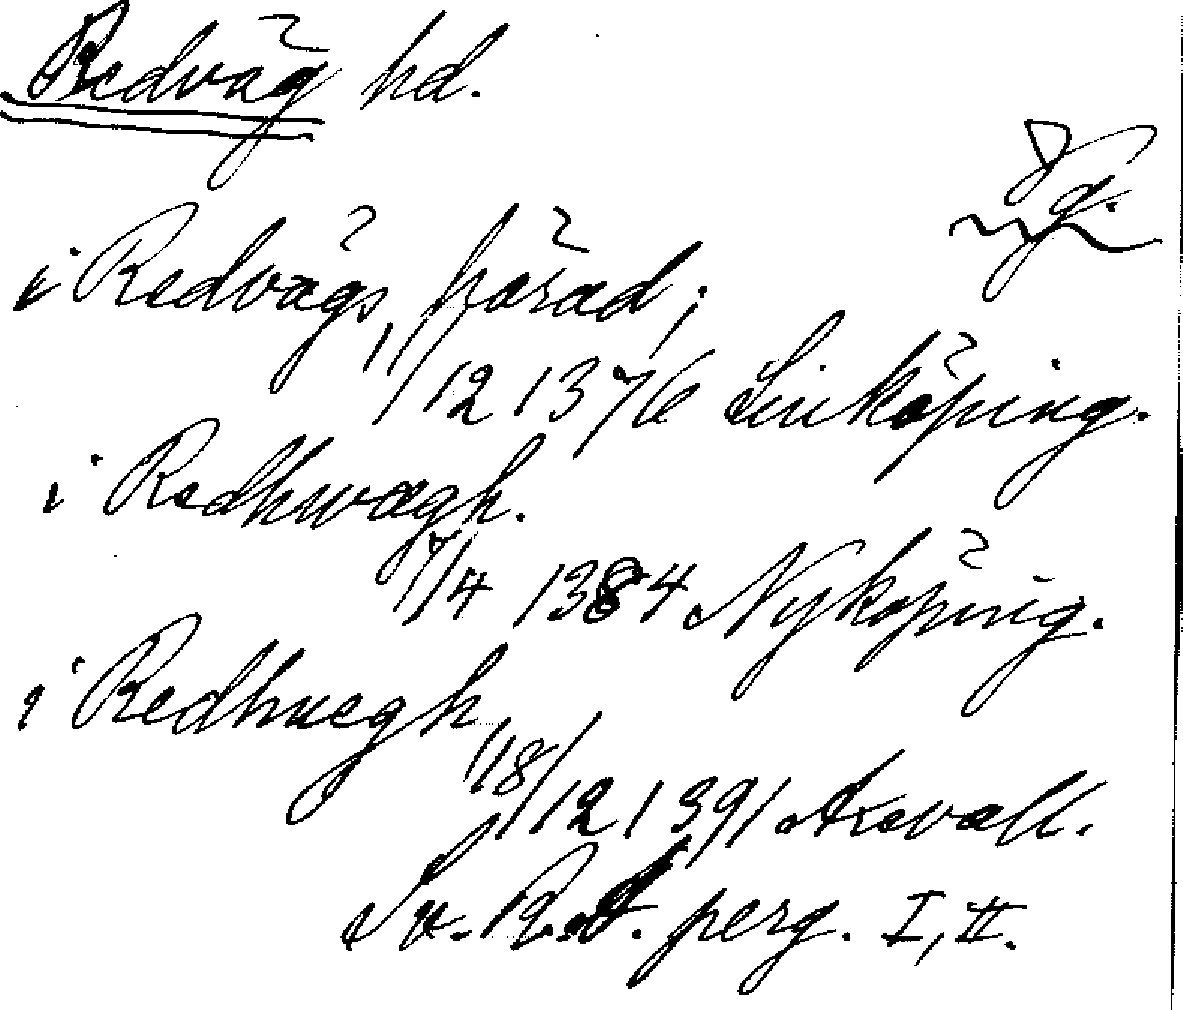 Redväg hd.
Vg.
i Redvägs härad;
11/12 1376 Linköping.
i Redhwægh.
17/4 1384 Nyköping.
i Redhuegh,
18/12 1391 Axevall.
Sv. R. A. perg. I, II.